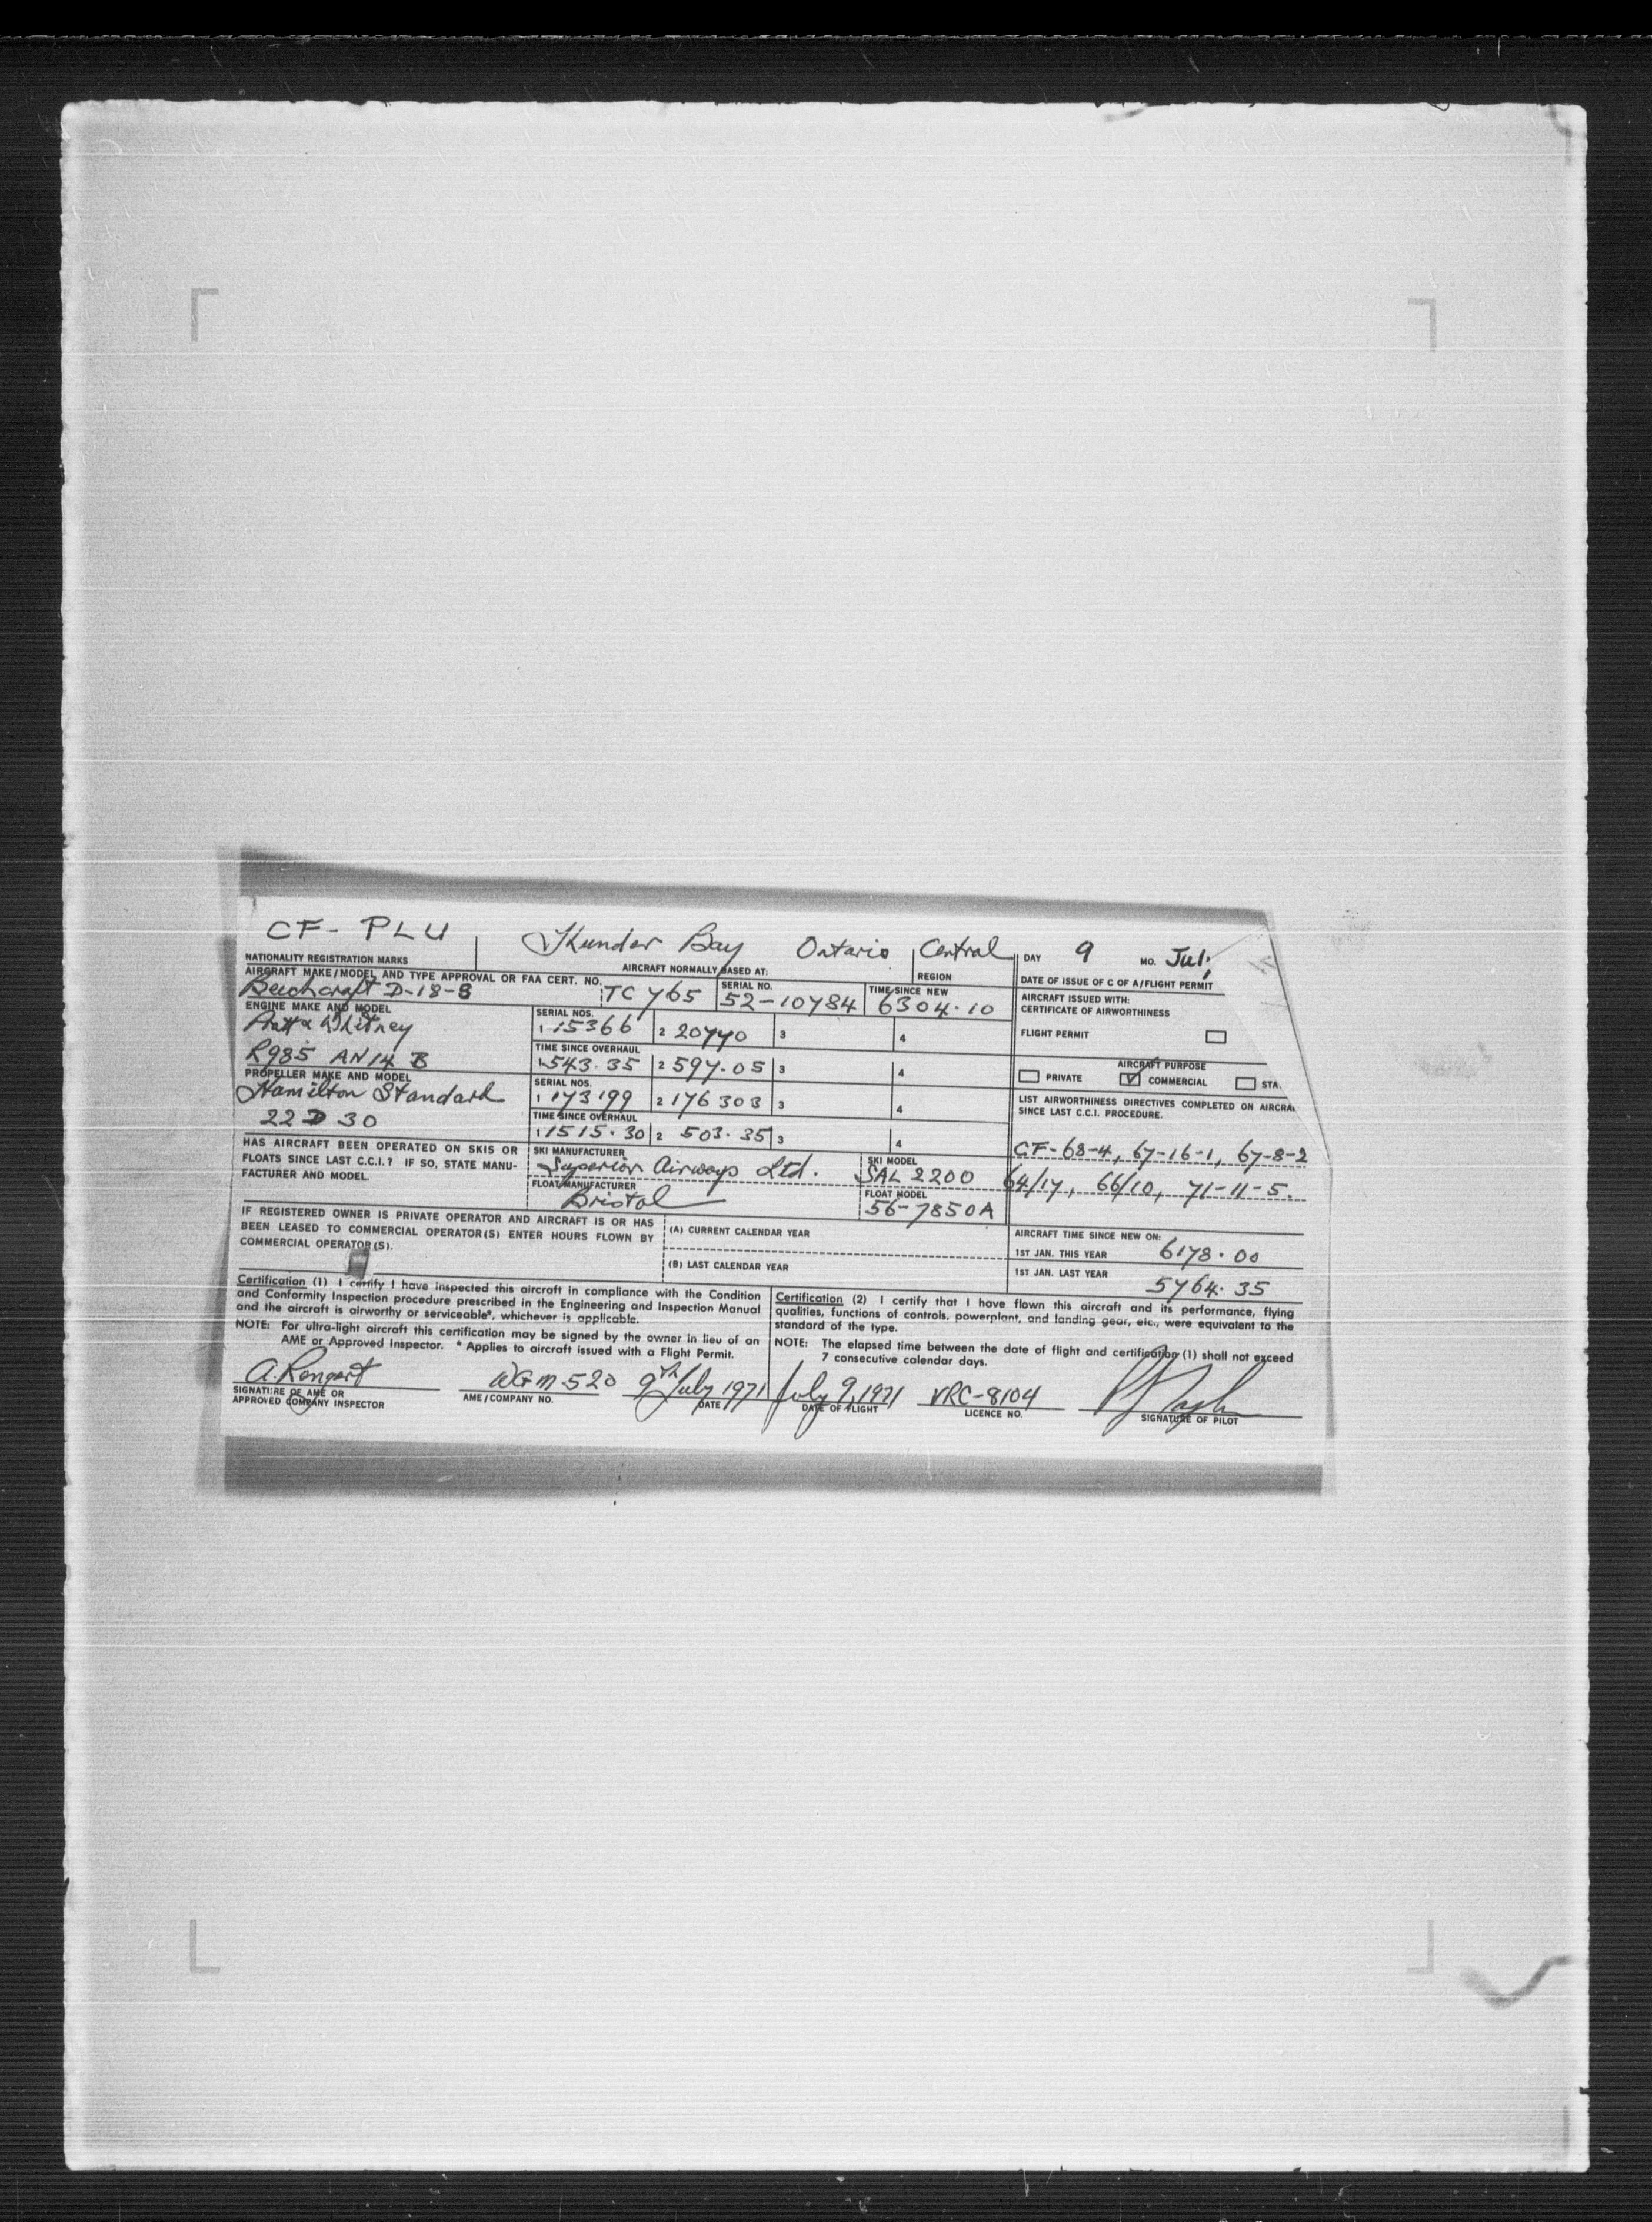 CF-PLU Thunder Bay Ontario Central DAY 9 MO. Jul.
NATIONALITY REGISTRATION MARKS AIRCRAFT NORMALLY BASED AT: REGION DATE OF ISSUE OF C OF A/FLIGHT PERMIT
AIRCRAFT MAKE/MODEL AND TYPE APPROVAL OR FAA CERT. NO. SERIAL NO. TIME SINCE NEW
Beechcraft D-18-S TC 765 52-10784 6304.10
AIRCRAFT ISSUED WITH:
CERTIFICATE OF AIRWORTHINESS
FLIGHT PERMIT
ENGINE MAKE AND MODEL SERIAL NOS.
Pratt & Whitney 1 15366 2 20770 3 4
TIME SINCE OVERHAUL
R985 AN14 B 1 543.35 2 597.05 3 4
AIRCRAFT PURPOSE
PRIVATE COMMERCIAL STA
PROPELLER MAKE AND MODEL SERIAL NOS.
Hamilton Standard 1 173199 2 176303 3 4
TIME SINCE OVERHAUL
22 D 30 1 1515.30 2 503.35 3 4
LIST AIRWORTHINESS DIRECTIVES COMPLETED ON AIRCRA
SINCE LAST C.C.I. PROCEDURE.
CF-68-4, 67-16-1, 67-8-2
64/17, 66/10, 71-11-5.
HAS AIRCRAFT BEEN OPERATED ON SKIS OR
FLOATS SINCE LAST C.C.I.? IF SO, STATE MANU-
FACTURER AND MODEL.
SKI MANUFACTURER SKI MODEL
Superior Airways Ltd. SAL 2200
FLOAT MANUFACTURER FLOAT MODEL
Bristol 56-7850A
IF REGISTERED OWNER IS PRIVATE OPERATOR AND AIRCRAFT IS OR HAS
BEEN LEASED TO COMMERCIAL OPERATOR(S) ENTER HOURS FLOWN BY
COMMERCIAL OPERATOR(S).
(A) CURRENT CALENDAR YEAR
(B) LAST CALENDAR YEAR
AIRCRAFT TIME SINCE NEW ON:
1ST JAN. THIS YEAR 6178.00
1ST JAN. LAST YEAR 5764.35
Certification (1) I certify I have inspected this aircraft in compliance with the Condition
and Conformity Inspection procedure prescribed in the Engineering and Inspection Manual
and the aircraft is airworthy or serviceable*, whichever is applicable.
NOTE: For ultra-light aircraft this certification may be signed by the owner in lieu of an
AME or Approved Inspector. * Applies to aircraft issued with a Flight Permit.
Certification (2) I certify that I have flown this aircraft and its performance, flying
qualities, functions of controls, powerplant, and landing gear, etc., were equivalent to the
standard of the type.
NOTE: The elapsed time between the date of flight and certification (1) shall not exceed
7 consecutive calendar days.
A. Rengert WGM-520 9th July 1971 July 9, 1971 VRC-8104
SIGNATURE OF AME OR
APPROVED COMPANY INSPECTOR AME/COMPANY NO. DATE DATE OF FLIGHT LICENCE NO. SIGNATURE OF PILOT